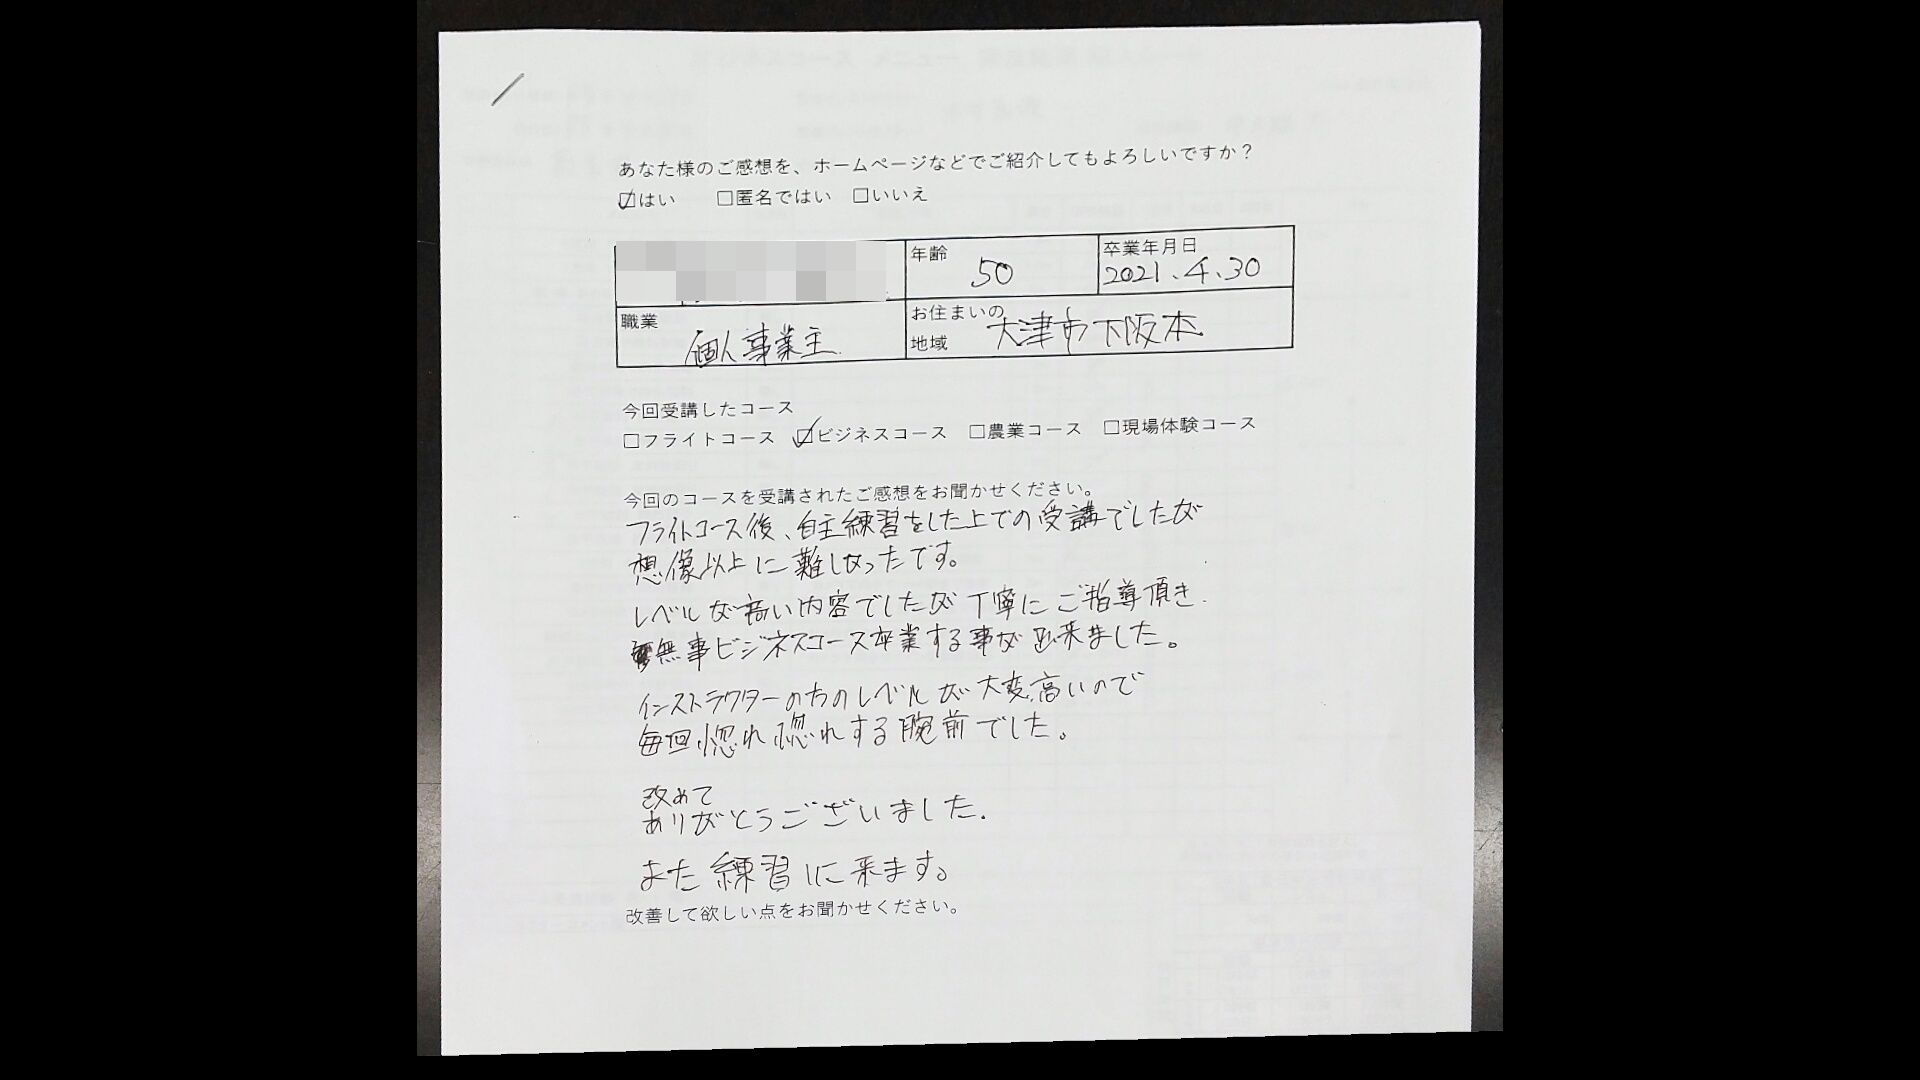 あなた様のご感想を、ホームページなどでご紹介してもよろしいですか？
☑はい □匿名ではい □いいえ
年齢
50
卒業年月日
2021.4.30
職業
個人事業主
お住まいの
地域
大津市下阪本
今回受講したコース
□フライトコース ☑ビジネスコース □農業コース □現場体験コース
今回のコースを受講されたご感想をお聞かせください。
フライトコース後、自主練習をした上での受講でしたが
想像以上に難しかったです。
レベルが高い内容でしたが丁寧にご指導頂き
無事ビジネスコース卒業する事が出来ました。
インストラクターの方のレベルが大変高いので
毎回惚れ惚れする腕前でした。
改めて
ありがとうございました.
また練習に来ます。
改善して欲しい点をお聞かせください。